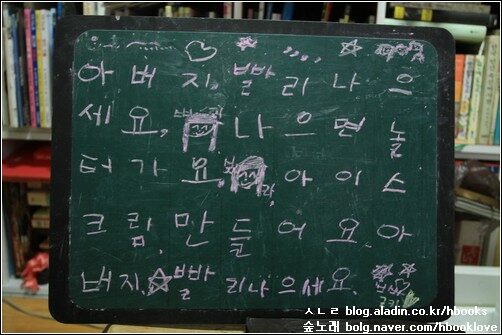 아버지, 빨리나으
세요, 나으면 놀
터가요. 아이스
크림, 만들어요. 아
버지, 빨리나으세요.
ㅅㄴㄹ blog.aladin.co.kr/hbooks
숲노래 bolg.naver.com/hbooklove